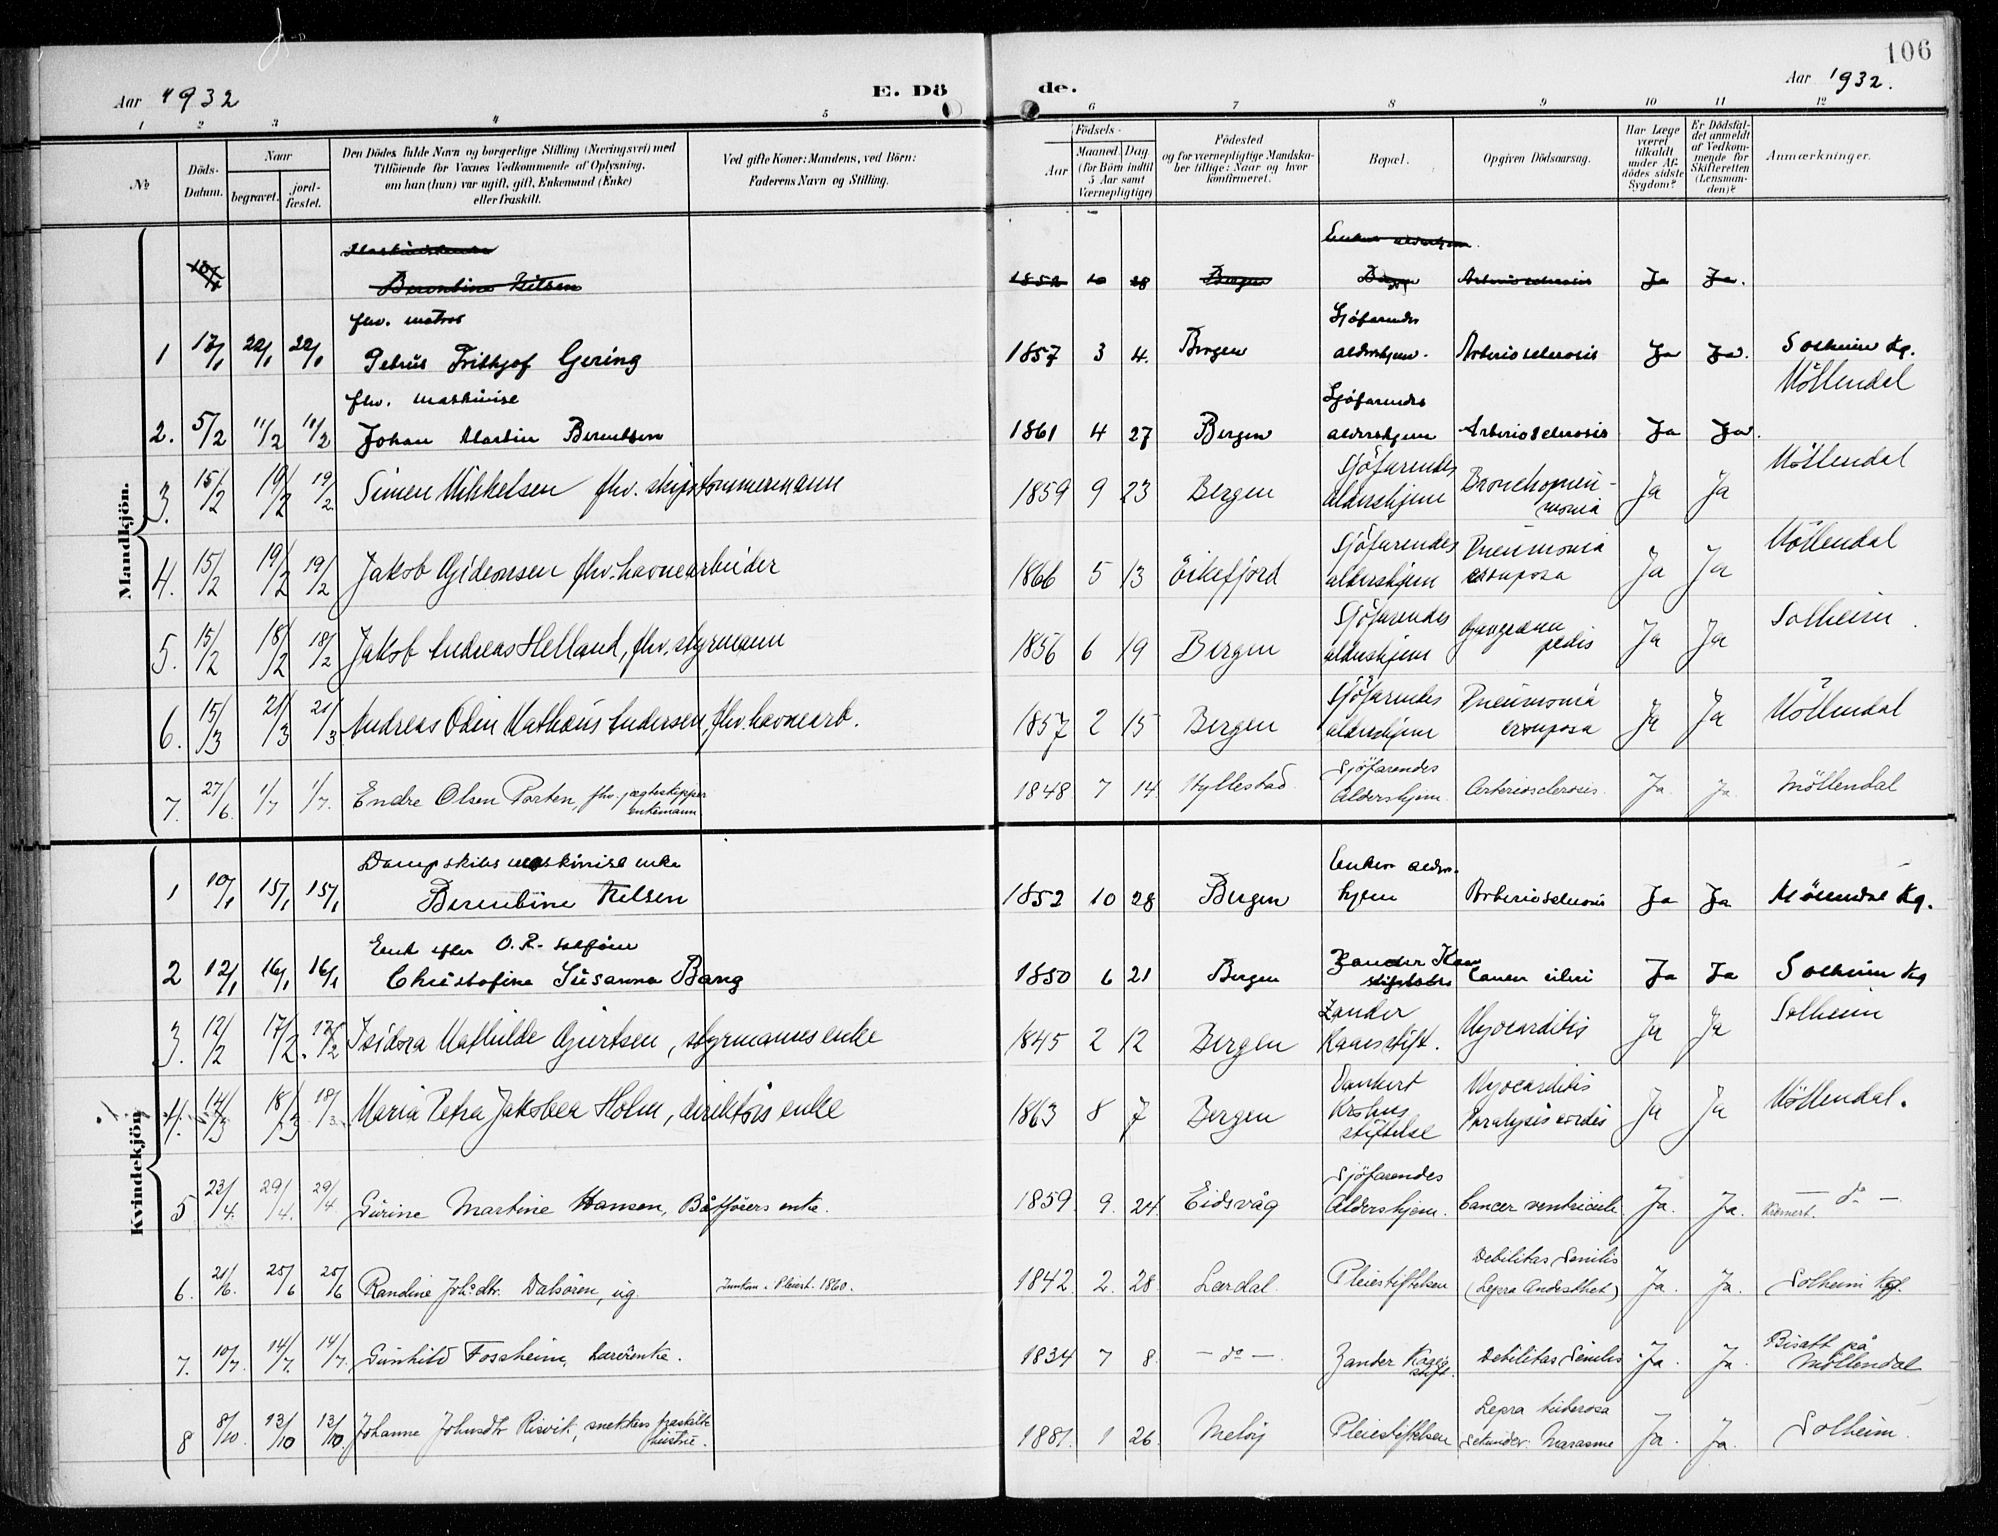 106
Aar 1932
E. Dö
de.
Aar 1932.
1 2 3 4 5 6 7 8 9 10 11 12
No
Döds-Datum.
Naar
begravet.
jord-fæstet.
Den Dödes fulde Navn og borgerlige Stilling (Næringsvei) med
Tilföiende for Voxnes Vedkommende af Oplysning,
om han (hun) var ugift, gift, Enkemand (Enke)
eller fraskilt.
Ved gifte Koner: Mandens, ved Börn:
Faderens Navn og Stilling.
Födsels-
Aar
Maaned Dag
(for Börn indtil
5 Aar samt
Værnepligtige)
Födested
og for værnepligtige Mandska-
ber tillige: Naar og hvor
konfirmeret.
Bopæl.
Opgiven Dödsaarsag.
Har Læge
været
tilkaldt
under Af-
dödes sidste
Sygdom?
Er Dödsfal-
det anmeldt
af Vedkom-
mende for
Skifteretten
(Lensman-
den)?
Anmærkninger.
Mandkjön.
Berentine Nilsen 1852 10 28 Bergen Bergen Arteriosclerosis Ja Ja.
fhv. matros Sjöfarendes
1 17/1 22/1 22/1 Petrus Frithjof Gering 1857 3 4. Bergen aldershjem. Arteriosclerosis Ja Ja. Solheim Kg.
fhv. maskinist Sjöfarendes Möllendal
2. 5/2 11/2 11/2 Johan Martin Berentsen 1861 4 27 Bergen aldershjem Arteriosclerosis Ja Ja.
3. 15/2 19/2 19/2 Simen Mikkelsen fhv. skipstømmermann 1859 9 23 Bergen Sjöfarendes aldershjem Bronchopneu-monia Ja Ja Möllendal
4. 15/2 19/2 19/2 Jakob Gideonsen fhv. havnearbeider 1866 5 13 Eikefjord Sjöfarendes aldershjem Pneumonia crouposa Ja Ja Möllendal
5. 15/2 18/2 18/2 Jakob Andreas Helland, fhv. styrmann 1856 6 19 Bergen Sjöfarendes aldershjem Gangræna pedis Ja Ja Solheim
6. 15/3 21/3 21/3 Andreas Odin Mathæus Andersen, fhv. havnearb. 1857 2 15 Bergen Sjöfarendes aldershjem Pneumonia crouposa Ja Ja Möllendal
7. 27/6 1/7 1/7. Endre Olsen Porten, fhv. jægteskipper enkemann 1848 7 14 Hyllestad Sjöfarendes Aldershjem. Arteriosclerosis. Ja. Ja. Möllendal
Kvindekjön
Dampskibsmaskinist enke
1 10/1 15/1 15/1 Berentine Nilsen 1852 10 28 Bergen Enkers alders-hjem Arteriosclerosis Ja Ja Möllendal Kg.
Enke efter O.R.
2 12/1 16/1 16/1 Christofine Susanna Bang 1850 6 21 Bergen Zander Kaa Cancer uteri Ja Ja Solheim Kg
3. 12/2 17/2. 17/2 Isidora Mathilde Gjertsen, styrmanns enke 1845 2 12 Bergen Zander Kaaes stift. Myocarditis Ja Ja Solheim
4. 14/3 18/3 18/3 Maria Petra Jakobea Holm, direktörs enke 1863 8 7 Bergen Dankert Krohns stiftelse Myocarditis Paralysis cordis Ja Ja Möllendal.
5 23/4. 29/4. 29/4. Gurine Martine Hansen, Båtförers enke. 1859 9. 24 Eidsvåg Sjöfarendes Aldershjem. Cancer ventriculi. Ja. Ja. Kremert. — do —
6. 21/6. 25/6 25/6 Randine Joh.dtr. Dalsören, ug. Innkom. i Pleiest. 1860. 1842. 2. 28. Lærdal. Pleiestiftelsen Debilitas Senilis (Lepra Anæsthet) Ja. Ja. Solheim Kg.
7. 10/7. 14/7. 14/7. Gunhild Fossheim, lærerenke. 1834 7 8. — do —. Zander Kaaes stift. Debilitas Senilis Ja. Ja. Bisatt på Möllendal
8 8/10. 13/10 13/10. Johanne Johnsdtr Risvik, snekkers fraskilte hustru. 1881. 1 26. Melöy Pleiestiftelsen Lepra tuberosa Sekundær Marasme Ja. Ja. Solheim.